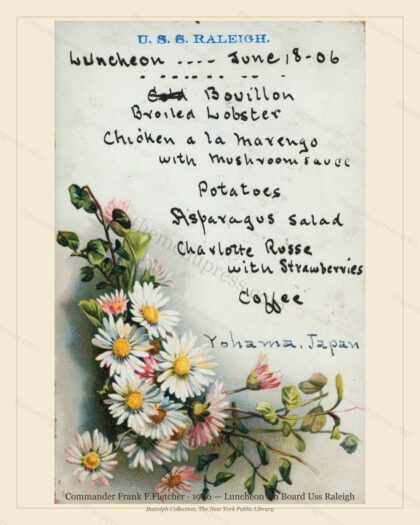 U. S. S. RALEIGH.
Luncheon .... June 18-06
Bouillon
Broiled Lobster
Chicken a la Marengo
with Mushroom Sauce
Potatoes
Asparagus Salad
Charlotte Russe
with Strawberries
Coffee
Yohama, Japan
Commander Frank F.Fletcher · 1906 — Luncheon On Board Uss Raleigh
Buttolph Collection, The New York Public Library